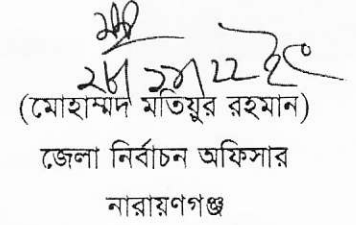 (মোহাম্মদ মতিয়ুর রহমান)
জেলা নির্বাচন অফিসার
নারায়ণগঞ্জ